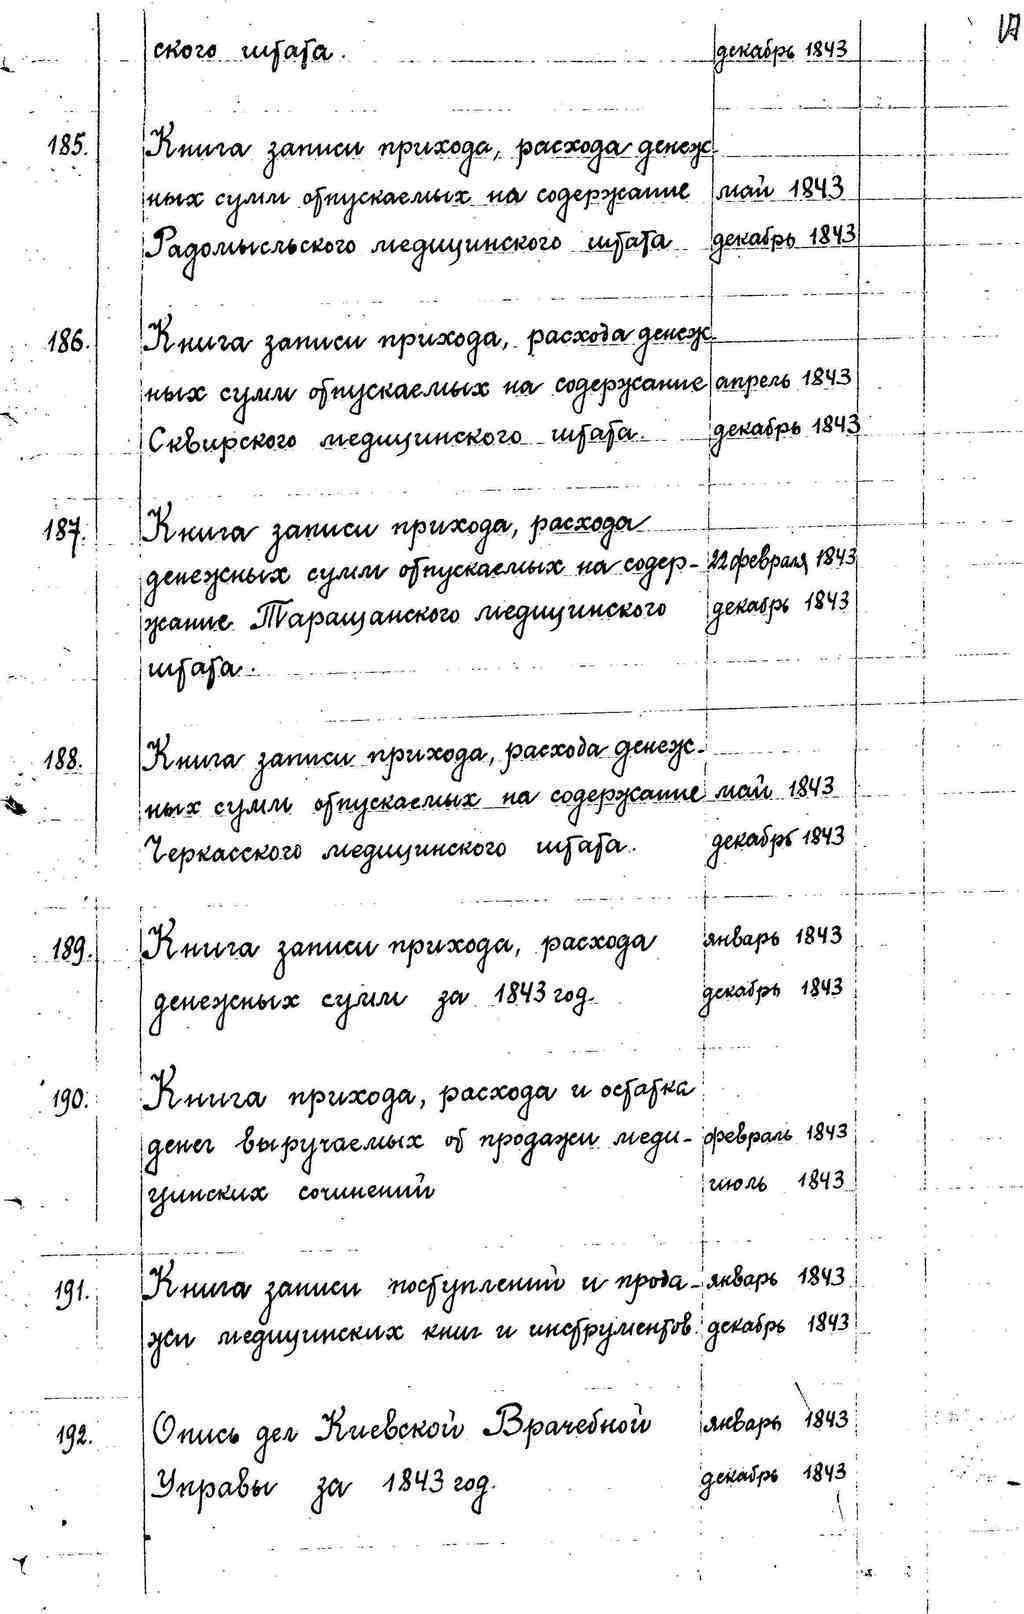 17
ского штата. декабрь 1843
185. Книга записи прихода, расхода денеж
ных сумм отпускаемых на содержание май 1843
Радомысльского медицинского штата декабрь 1843
186. Книга записи прихода, расхода денеж
ных сумм отпускаемых на содержание апрель 1843
Сквирского медицинского штата. декабрь 1843
187. Книга записи прихода, расхода
денежных сумм отпускаемых на содер- 22 февраля 1843
жание Таращанского медицинского декабрь 1843
штата.
188. Книга записи прихода, расхода денеж-
ных сумм отпускаемых на содержание май 1843
Черкасского медицинского штата. декабрь 1843
189. Книга записи прихода, расхода январь 1843
денежных сумм за 1843 год. декабрь 1843
190. Книга прихода, расхода и остатка
денег выручаемых от продажи меди- февраль 1843
цинских сочинений июль 1843
191. Книга записи поступлений и прода- январь 1843
жи медицинских книг и инструментов. декабрь 1843
192. Опись дел Киевской Врачебной январь 1843
Управы за 1843 год. декабрь 1843